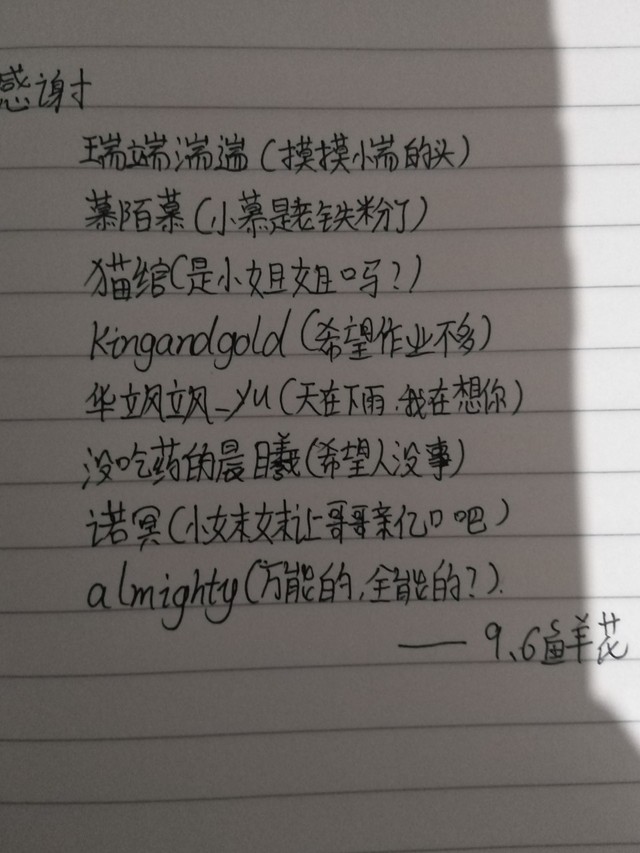 感谢
瑞端湍遄(摸摸小湍的头)
慕陌慕(小慕是老铁粉了)
猫绾(是小姐姐吗?)
kingandgold(希望作业不多)
华飒飒_yu(天在下雨,我在想你)
没吃药的晨曦(希望人没事)
诺冥(小妹妹让哥哥亲亿口吧)
almighty(万能的,全能的?).
——9.6鲜花